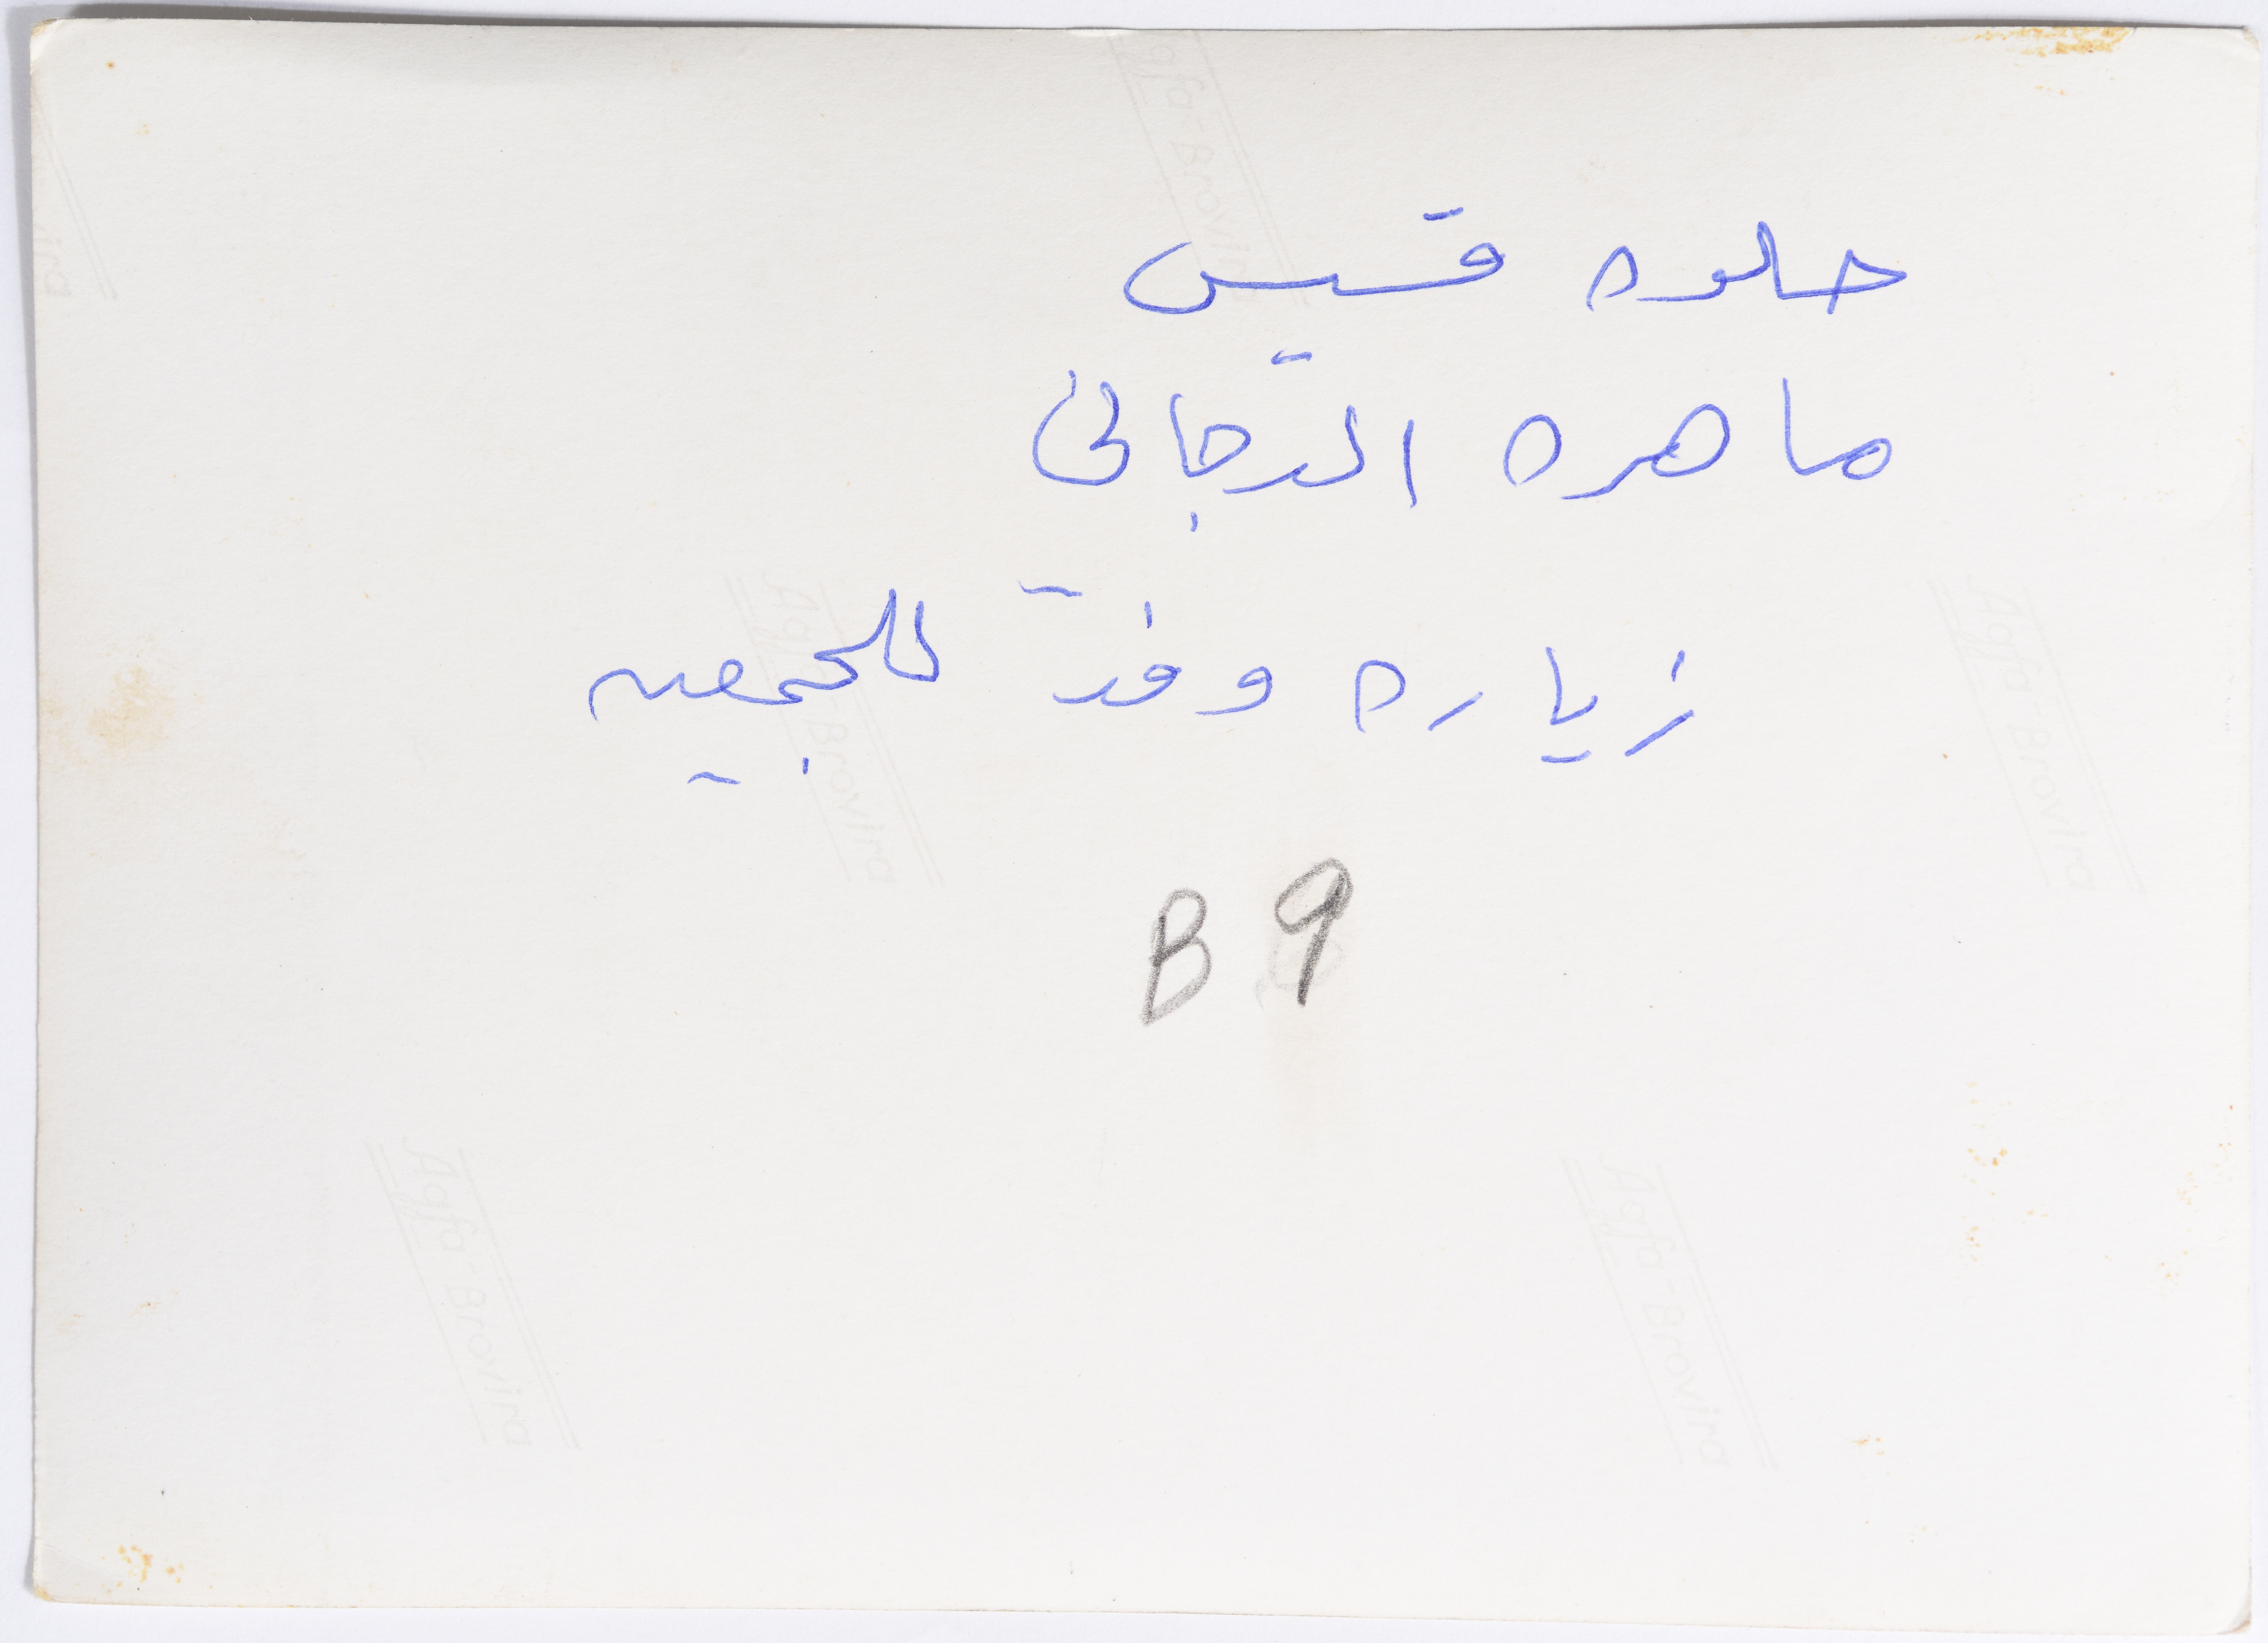 حلوه قسيس
ماهره الدجاني
زياره وفد للجمعيه
B 9
Agfa-Brovira
Agfa-Brovira
Agfa-Brovira
Agfa-Brovira
Agfa-Brovira